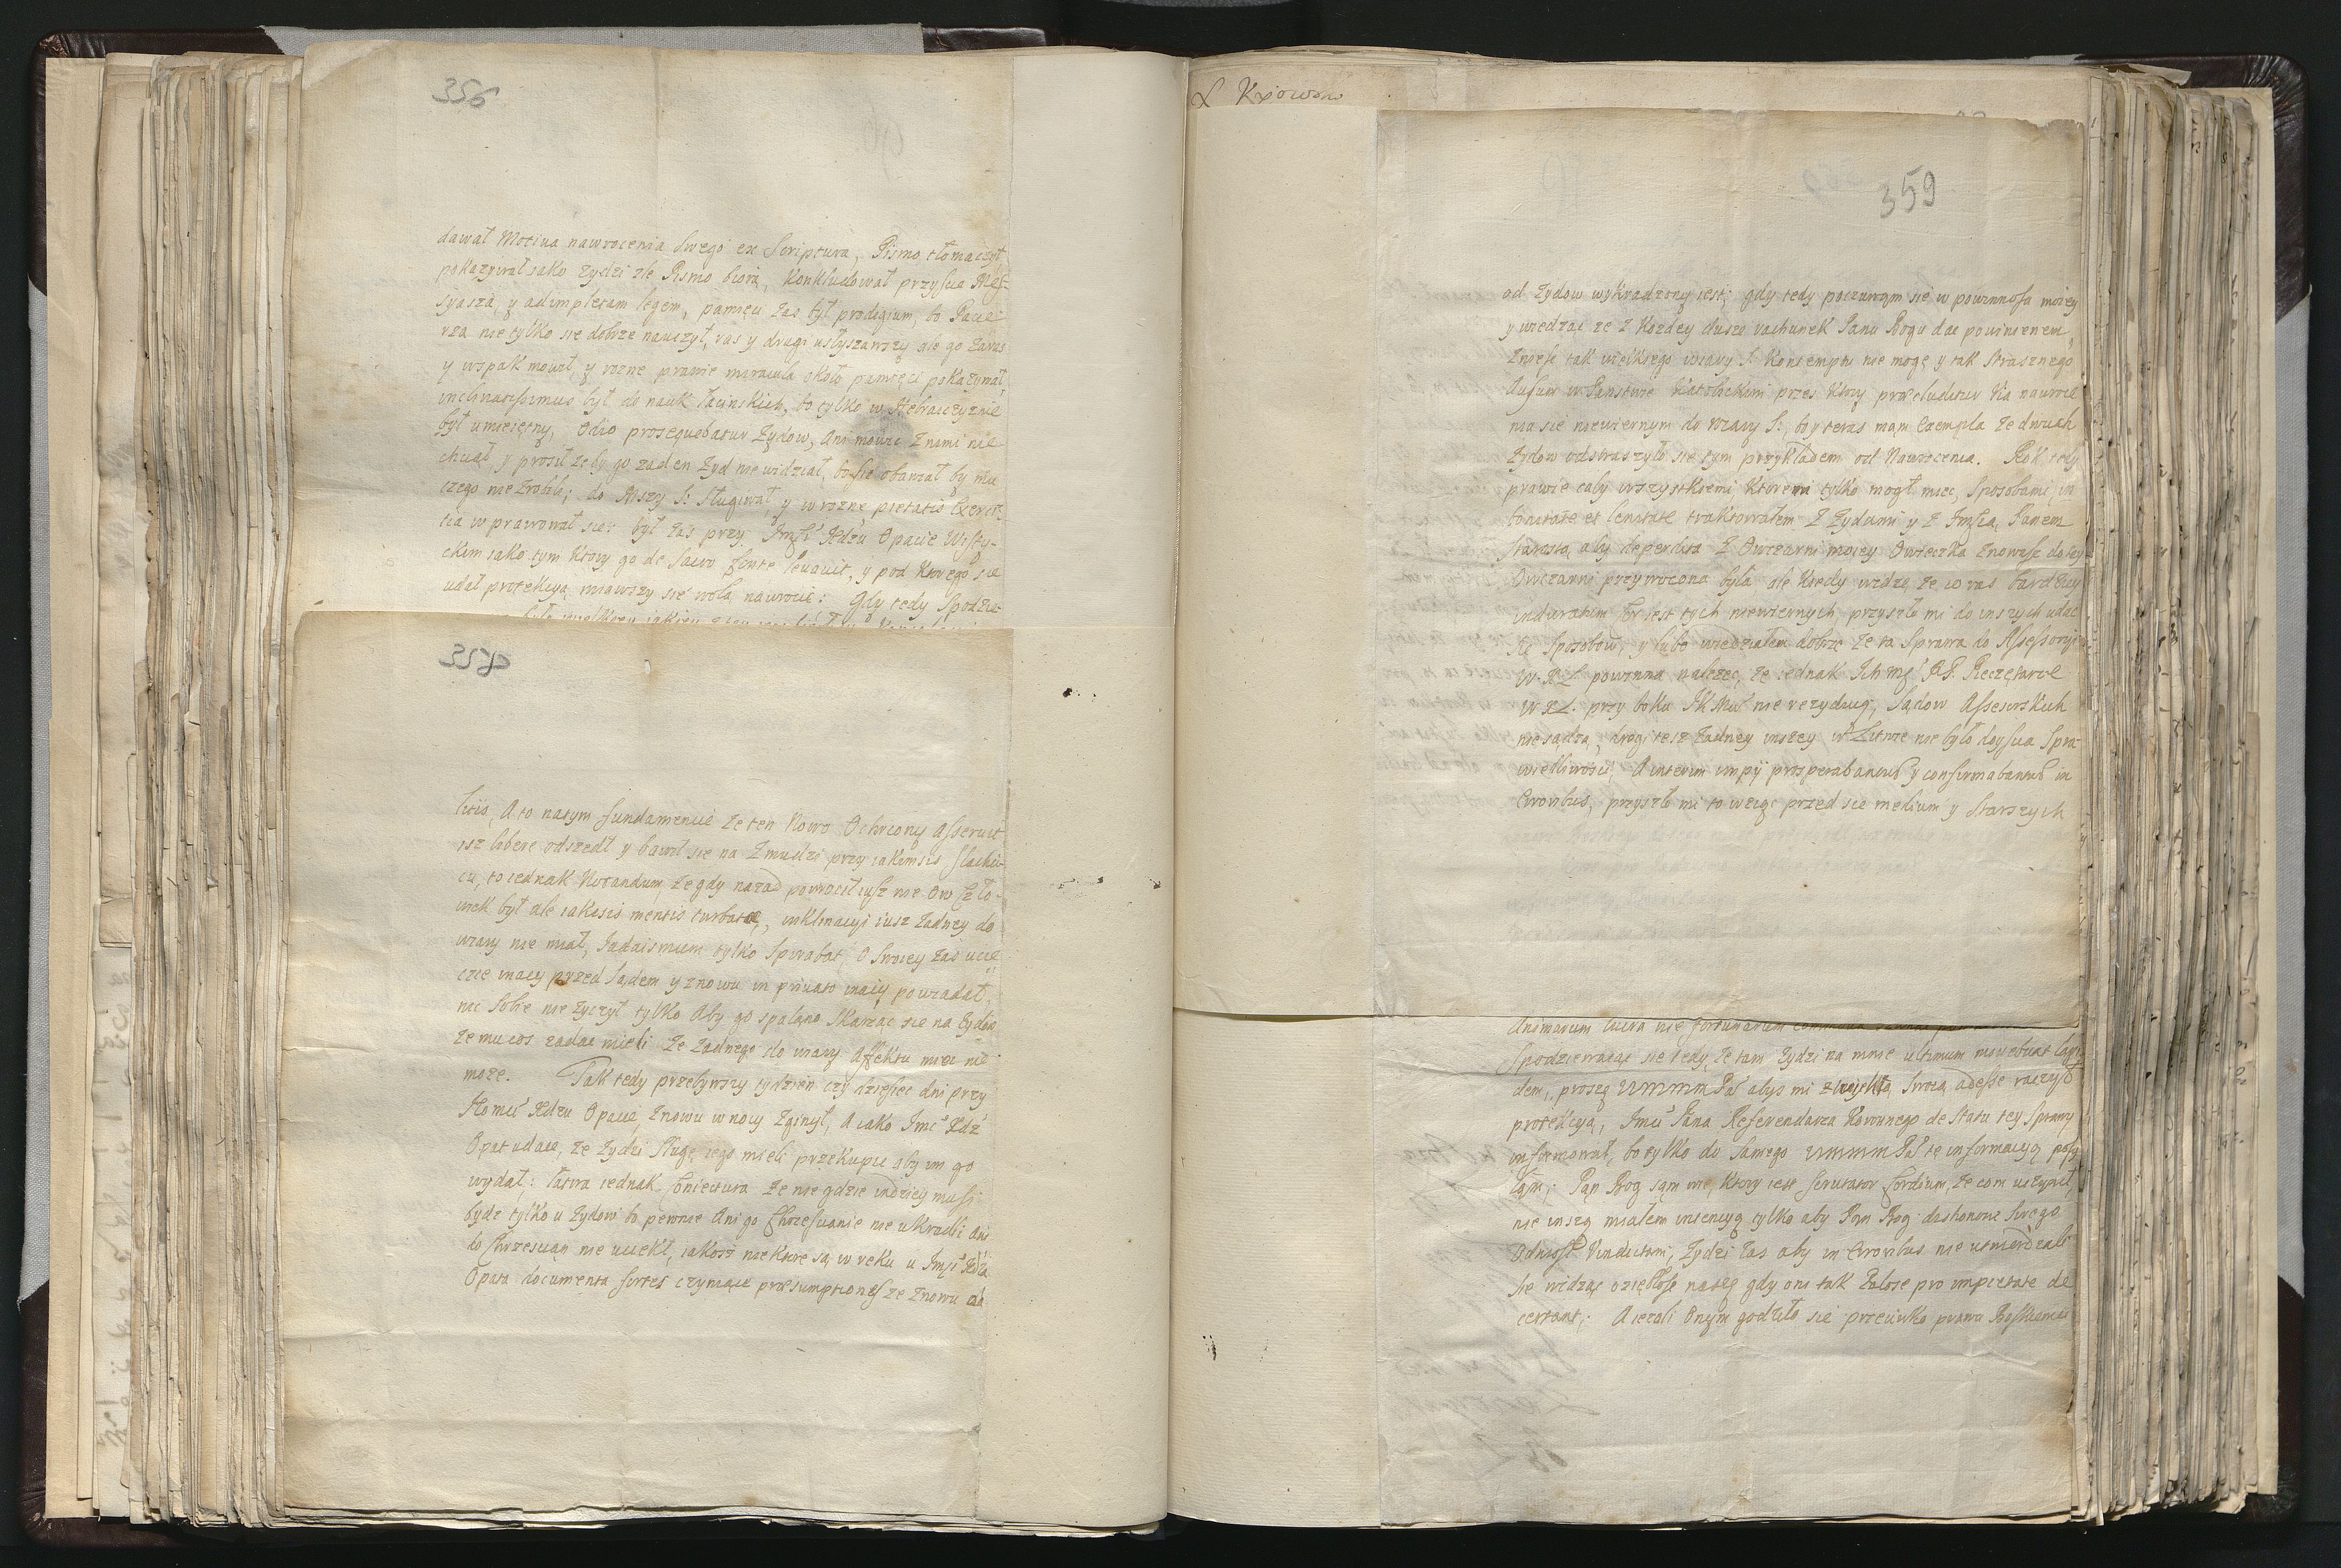 356
dawał Motiva nawrocenia Swego ex Scriptura, Pismo tłomaczył
pokazywał iako Zydzi zle Pismo biorą, Konkludował przyscie Mes-
syasza, y adimpletam legem, pamięci zas był prodigium, bo Pacie-
rza nie tylko sie dobrze nauczył, raz y drugi usłyszawszy ale go zaraz
y wspak mowił, y rozne prawie miracula około pamięci pokazywał,
inclinatissimus był do nauk łacinskich, bo tylko w Hebraiczyznie
był umieiętny, Odio prosequebatur Zydow, Ani mowic z nimi nie
chciał y prosił zeby go zaden Zyd nie widział, bo sie obawiał by mu
czego nie zrobili; do Mszy S: sługiwał, y w rozne pietatis Exerci-
tia wprawował sie: był zas przy Imści Xdzu Opacie Wisty-
ckim iako tym ktory go de Sacro fonte levavit, y pod ktorego sie
udał protekcyą maiąwszy sie wolą nawrocic: Gdy tedy Spodzie-
357
litis, A to natym fundamencie ze ten Nowo Ochrcony Asseruit
isz libere odszedł y bawił sie na Zmudzi przy iakimsis slachci-
cu, to iednak Notandum, ze gdy nazad powrocił iusz nie Ow Czło-
wiek był ale iakosis mentis turbatæ, inklinacyi iusz zadney do
wiary nie miał, Iudaismum tylko Spirabat, O Swoiey zas uciec
czce inaczy przed Sądem y znowu in privato inaczy powiadał,
nic Sobie nie zyczył tylko Aby go spalono skarząc sie na Zydow
ze mu cos zadac mieli ze zadnego do wiary Affektu miec nie
moze. Tak tedy przebywszy tydzien czy dziesiec dni przy
Xdzu Opacie, Znowu w nocy Zginył, A iako Imć Xdz
Opat udaie, ze Zydzi Sługę iego mieli przekupic aby im go
wydał: łatwa iednak Coniectura ze nie gdzie indziey musi
bydz tylko u Zydow bo pewnie Ani go Chrzescianie nie ukradli ani
do Chrzescian nie uciekł, iakosz niektore są w reku u Imści Xdza
Opata documenta fortes czyniące præsumptiones ze znowu od
X Kiiowski
359
od Zydow wykradzony iest; gdy tedy poczuwam sie w powinnosci moiey
y wiedząc ze z kozdey dusze rachunek Panu Bogu dac powinienem,
Zniesc tak wielkiego wiary S: Kontemptu nie mogę y tak strasznego
Ausum w Panstwie Katolickim przez ktory præcluditur via nawroce
nia sie niewiernym do wiary S:, bo y teraz mam Exempla ze dwuch
Zydow odstraszyło sie tym przykładem od Nawrocenia. Rok tedy
prawie cały wszystkiemi ktoremi tylko mogł miec Sposobami in
bonitate et lenitate traktowałem z Zydami y z Imścią Panem
Starostą aby deperdita z Owczarni moiey Owieczka znowusz do tey
Owczarni przywrocona była ale kiedy widze ze coraz bardziey
induratum Cor iest tych niewiernych, przyszło mi do inszych udac
się Sposobow, y lubo wiedziałem dobrze ze ta Sprawa do Assessoryi
W.X.L. powinna nalezec, ze iednak Ich Mć PP. Pieczętarze
W.X.L. przy boku JKMci nie rezyduią, Sądow Assesorskich
nie sądzą, drogi tesz zadney inszey w Litwie nie było doyscia Spra-
wiedliwosci, A interim impij prosperabantur y confirmabantur in
Erroribus, przyszło mi to wziąc przed sie medium y Starszych
Animarum lucra nie fortunarum
Spodziewaiąc sie tedy ze tam Zydzi na mnie ultimum movebunt lapi
dem, proszę WMMM Pa abys mi zwykłą Swoią adesse raczył
protekcyą, Imci Pana Referendarza Koronnego de Statu tey Sprawy
informował, bo tylko do Samego WMMM Pa tę informacyą posy
łam; Pan Bog sam wie, ktory iest Scrutator Cordium, ze com uczynił,
nie inszą miałem intencyą tylko aby Pan Bog dishonoru swego
Odniosł Vindictam, Zydzi zas aby in Erroribus nie utwierdzali
sie widząc oziębłosc naszę gdy oni tak Zelose pro impietate de
certant; A iezeli Onym godziło sie przeciwko prawu Boskiemu